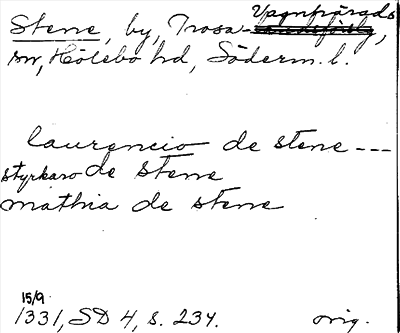 Stene, by, Trosa-Vagnhärads
sn, Hölebo hd, Söderm. l.
laurencio de stene ---
styrkaro de stene
mathia de stene
15/9
1331, SD 4, s. 234.
orig.